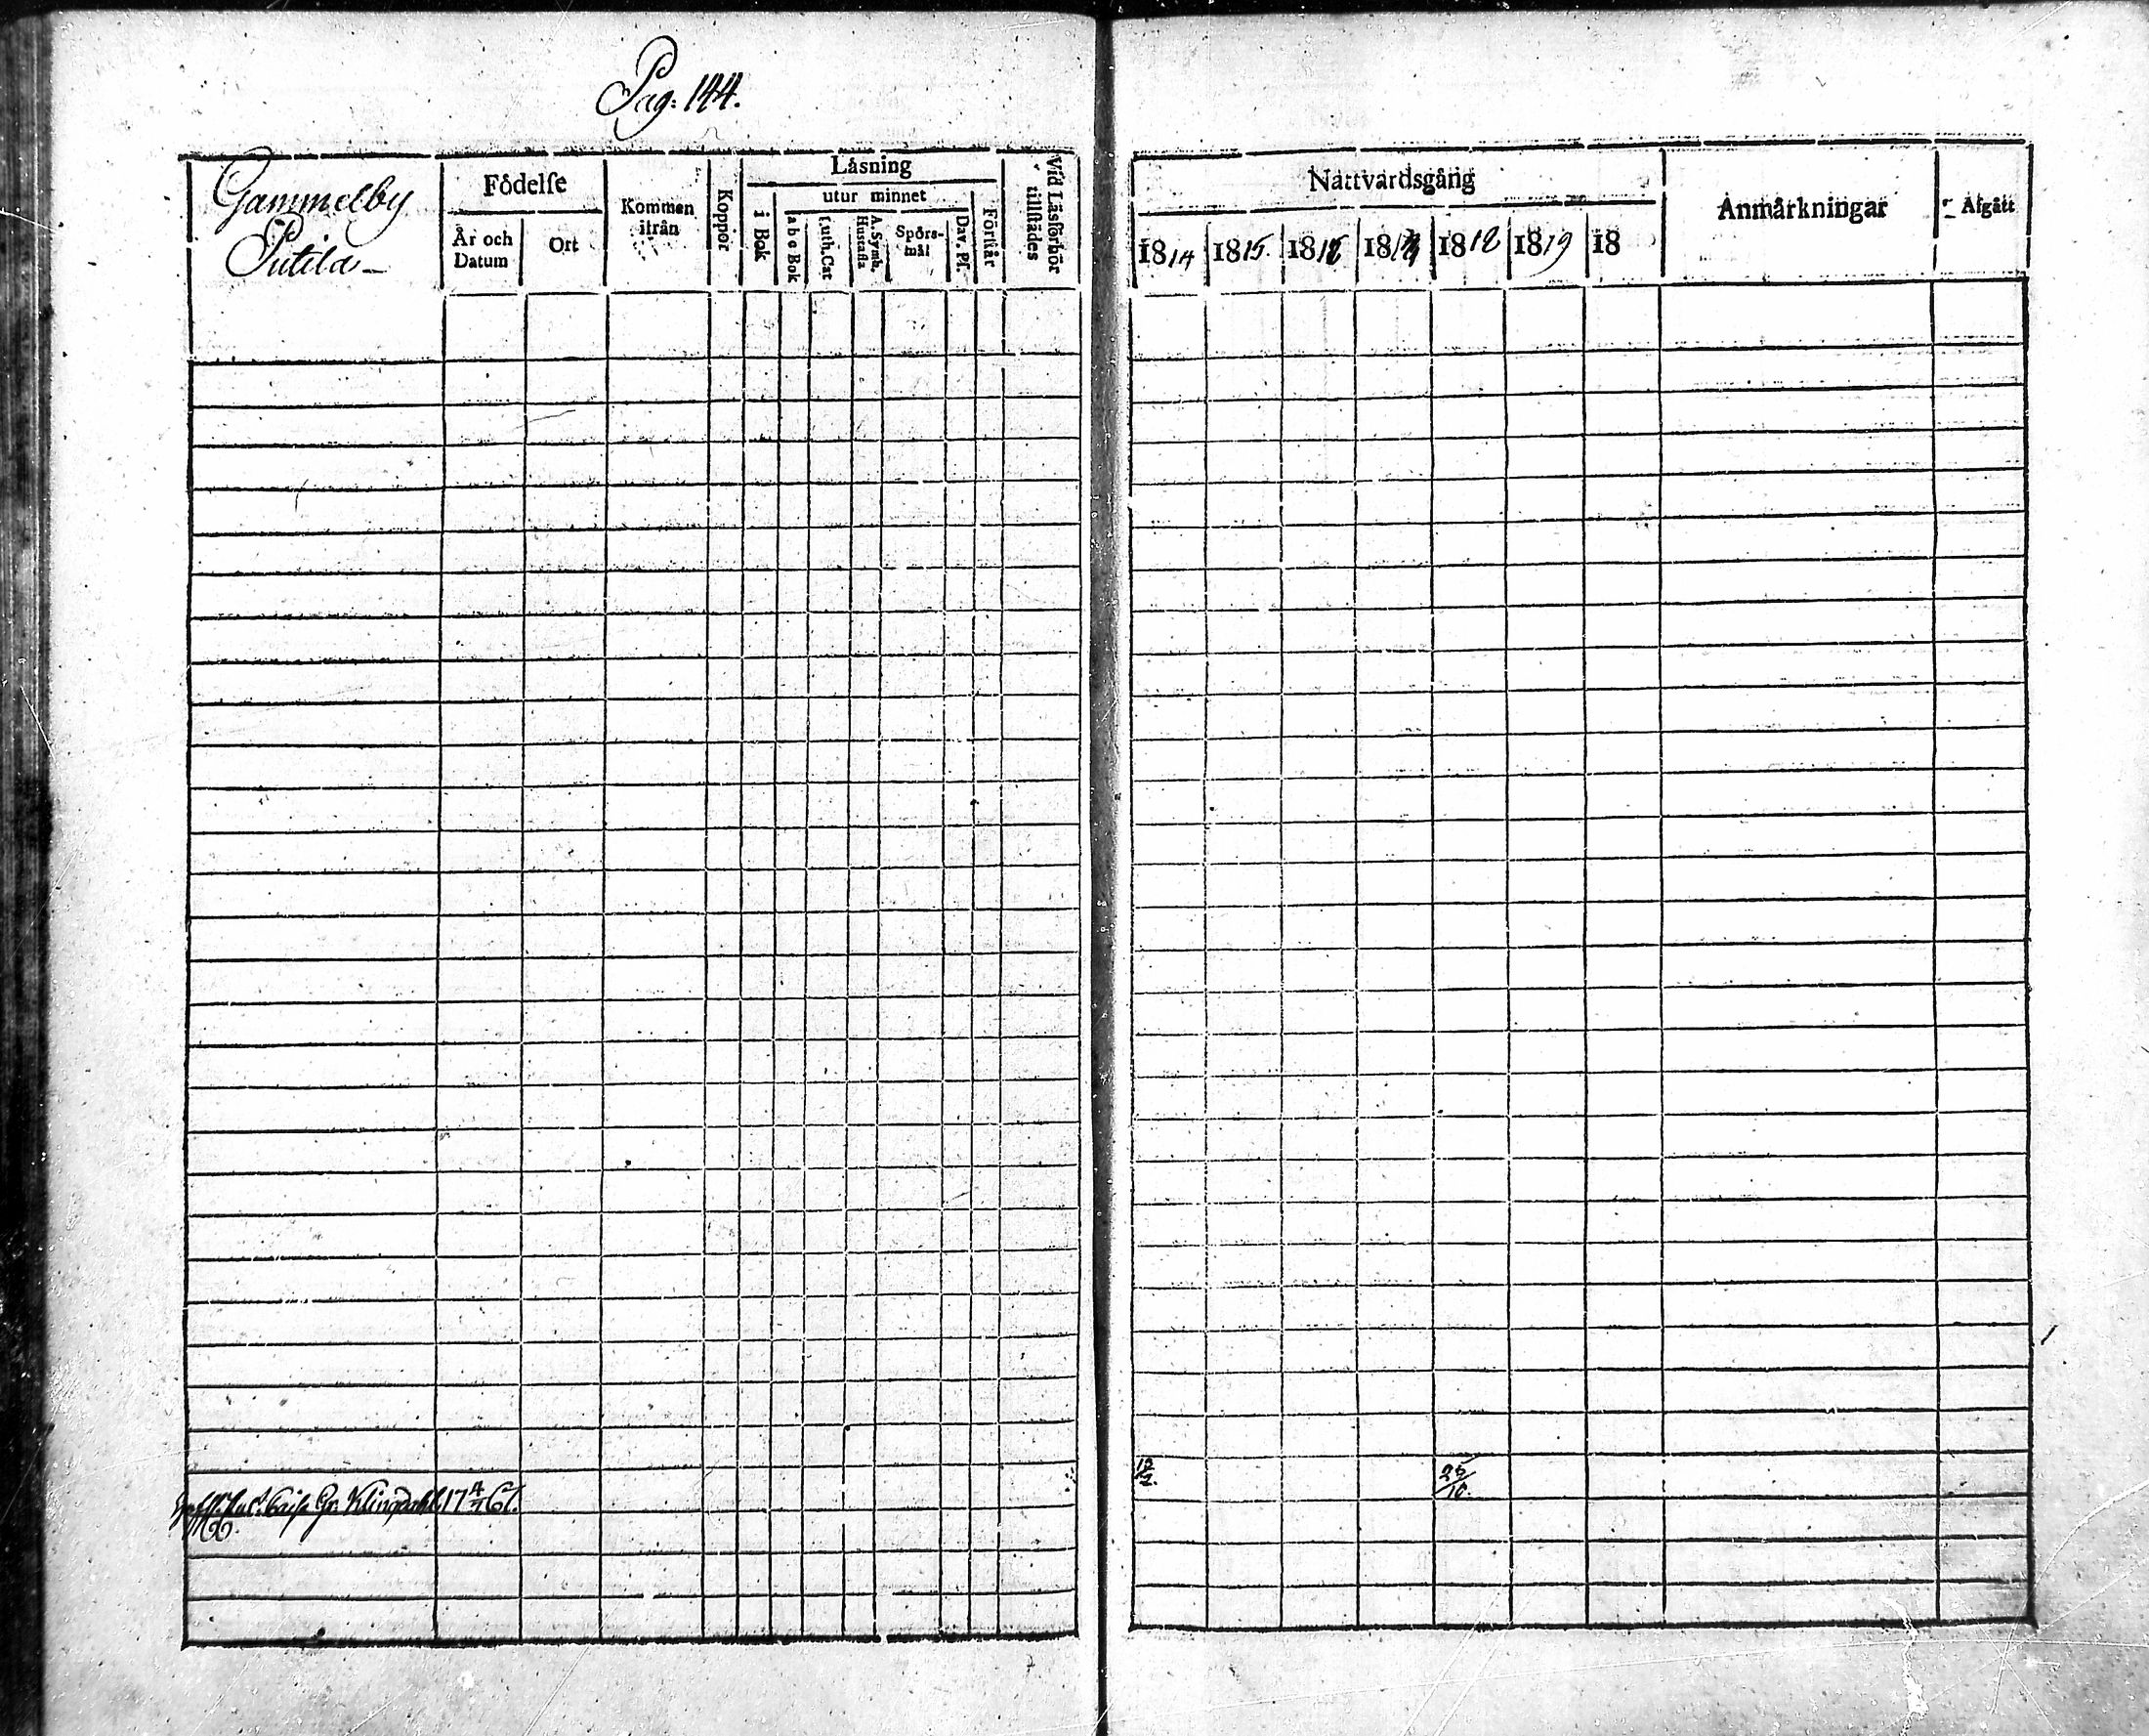 Pag: 144.
Gammelby
Putila
Födelſe
År och Datum
Ort
Kommen ifrån
Koppor
Läsning
utur minnet
i Bok
a b c Bok
Luth. Cat
A. Symb. Hustafla
Spörsmål
Dav. Pſ.
Förſtår
Vid Läsförhör tillſtädes
Nattvardsgång
1814 1815. 18 18 1818 1819 18
Anmärkningar
Afgått
Gr. Klingdahl 17 4/7 67.
12/2.
25/10.